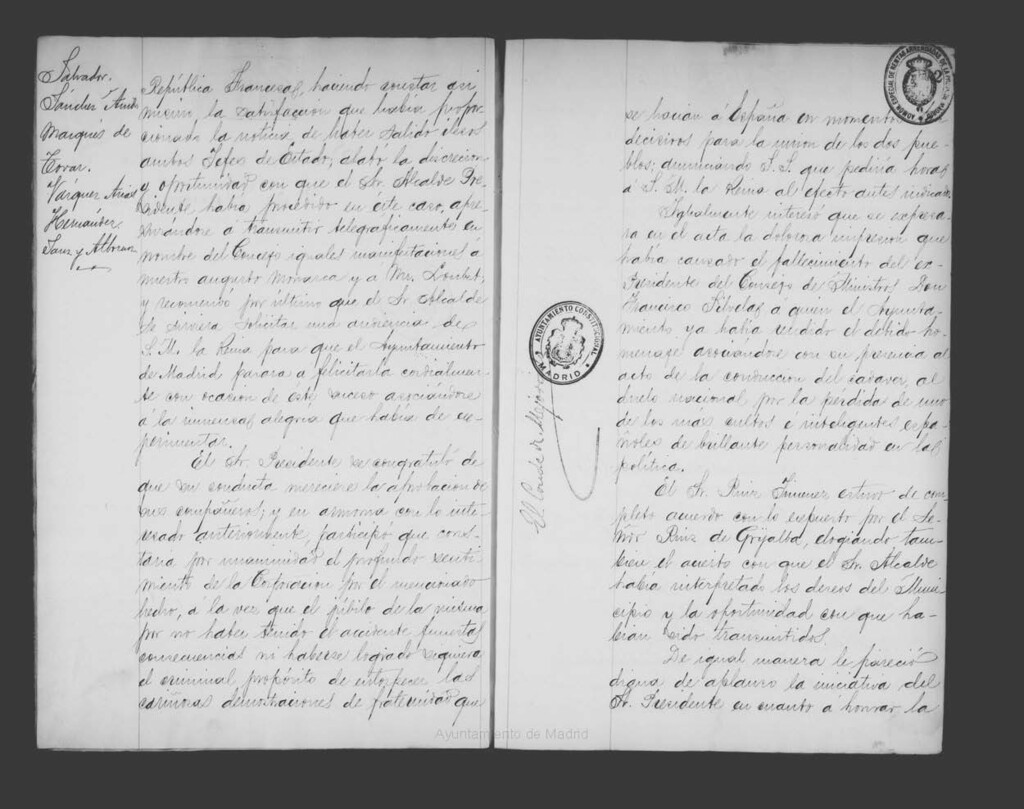 Salvador.
Sánchez Anido
Marqués de
Tovar.
Vázquez Arias
Hernández
Sanz y Albornoz
República Francesa, haciendo constar asi
mismo la satisfacción que había propor
cionado la noticia de haber salido ilesos
ambos Jefes de Estado; alabó la discreción
y oportunidad con que el Sr. Alcalde Pre-
sidente había procedido en este caso, apre-
surándose a transmitir telegráficamente en
nombre del Concejo iguales manifestaciones á
nuestro augusto Monarca y a Mr. Loubet;
y recomendó por último que el Sr. Alcalde
se sirviera solicitar una audiencia de
S. M. la Reina para que el Ayuntamiento
de Madrid pasara a felicitarla cordialmen
te con ocasión de éste suceso asociándose
á la inmensa alegria que había de ex-
perimentar.
El Sr. Presidente se congratuló de
que su conducta mereciese la aprobación de
sus compañeros; y en armonia con lo inte-
resado anteriormente, participó que cons-
taria por unanimidad el profundo senti-
miento de la Corporación por el mencionado
hecho, á la vez que el júbilo de la misma
por no haber tenido el accidente funestas
consecuencias ni haberse logrado siquiera
el criminal propósito de entorpecer las
cariñosas demostraciones de fraternidad que
AYUNTAMIENTO CONSTITUCIONAL
MADRID
El Conde de Mejorada
se hacian á España en momentos
decisivos para la union de los dos pue-
blos; anunciando S. S. que pediria hora
á S. M. la Reina al efecto antes indicado.
Igualmente interesó que se expresa-
ra en el acta la dolorosa impresión que
había causado el fallecimiento del ex-
Presidente del Consejo de Ministros Don
Francisco Silvela, á quien el Ayunta-
miento ya había rendido el debido ho-
menaje asociándose con su presencia al
acto de la conducción del cadaver, al
duelo nacional por la pérdida de uno
de los más cultos é inteligentes espa-
ñoles de brillante personalidad en la
política.
El Sr. Ruiz Jimenez estuvo de com-
pleto acuerdo con lo expuesto por el Se-
ñor Ruiz de Grijalba, elogiando tam-
bien el acierto con que el Sr. Alcalde
había interpretado los deseos del Muni-
cipio y la oportunidad con que ha-
bían sido transmitidos.
De igual manera le pareció
digna de aplauso la iniciativa del
Sr. Presidente en cuanto á honrar la
Ayuntamiento de Madrid